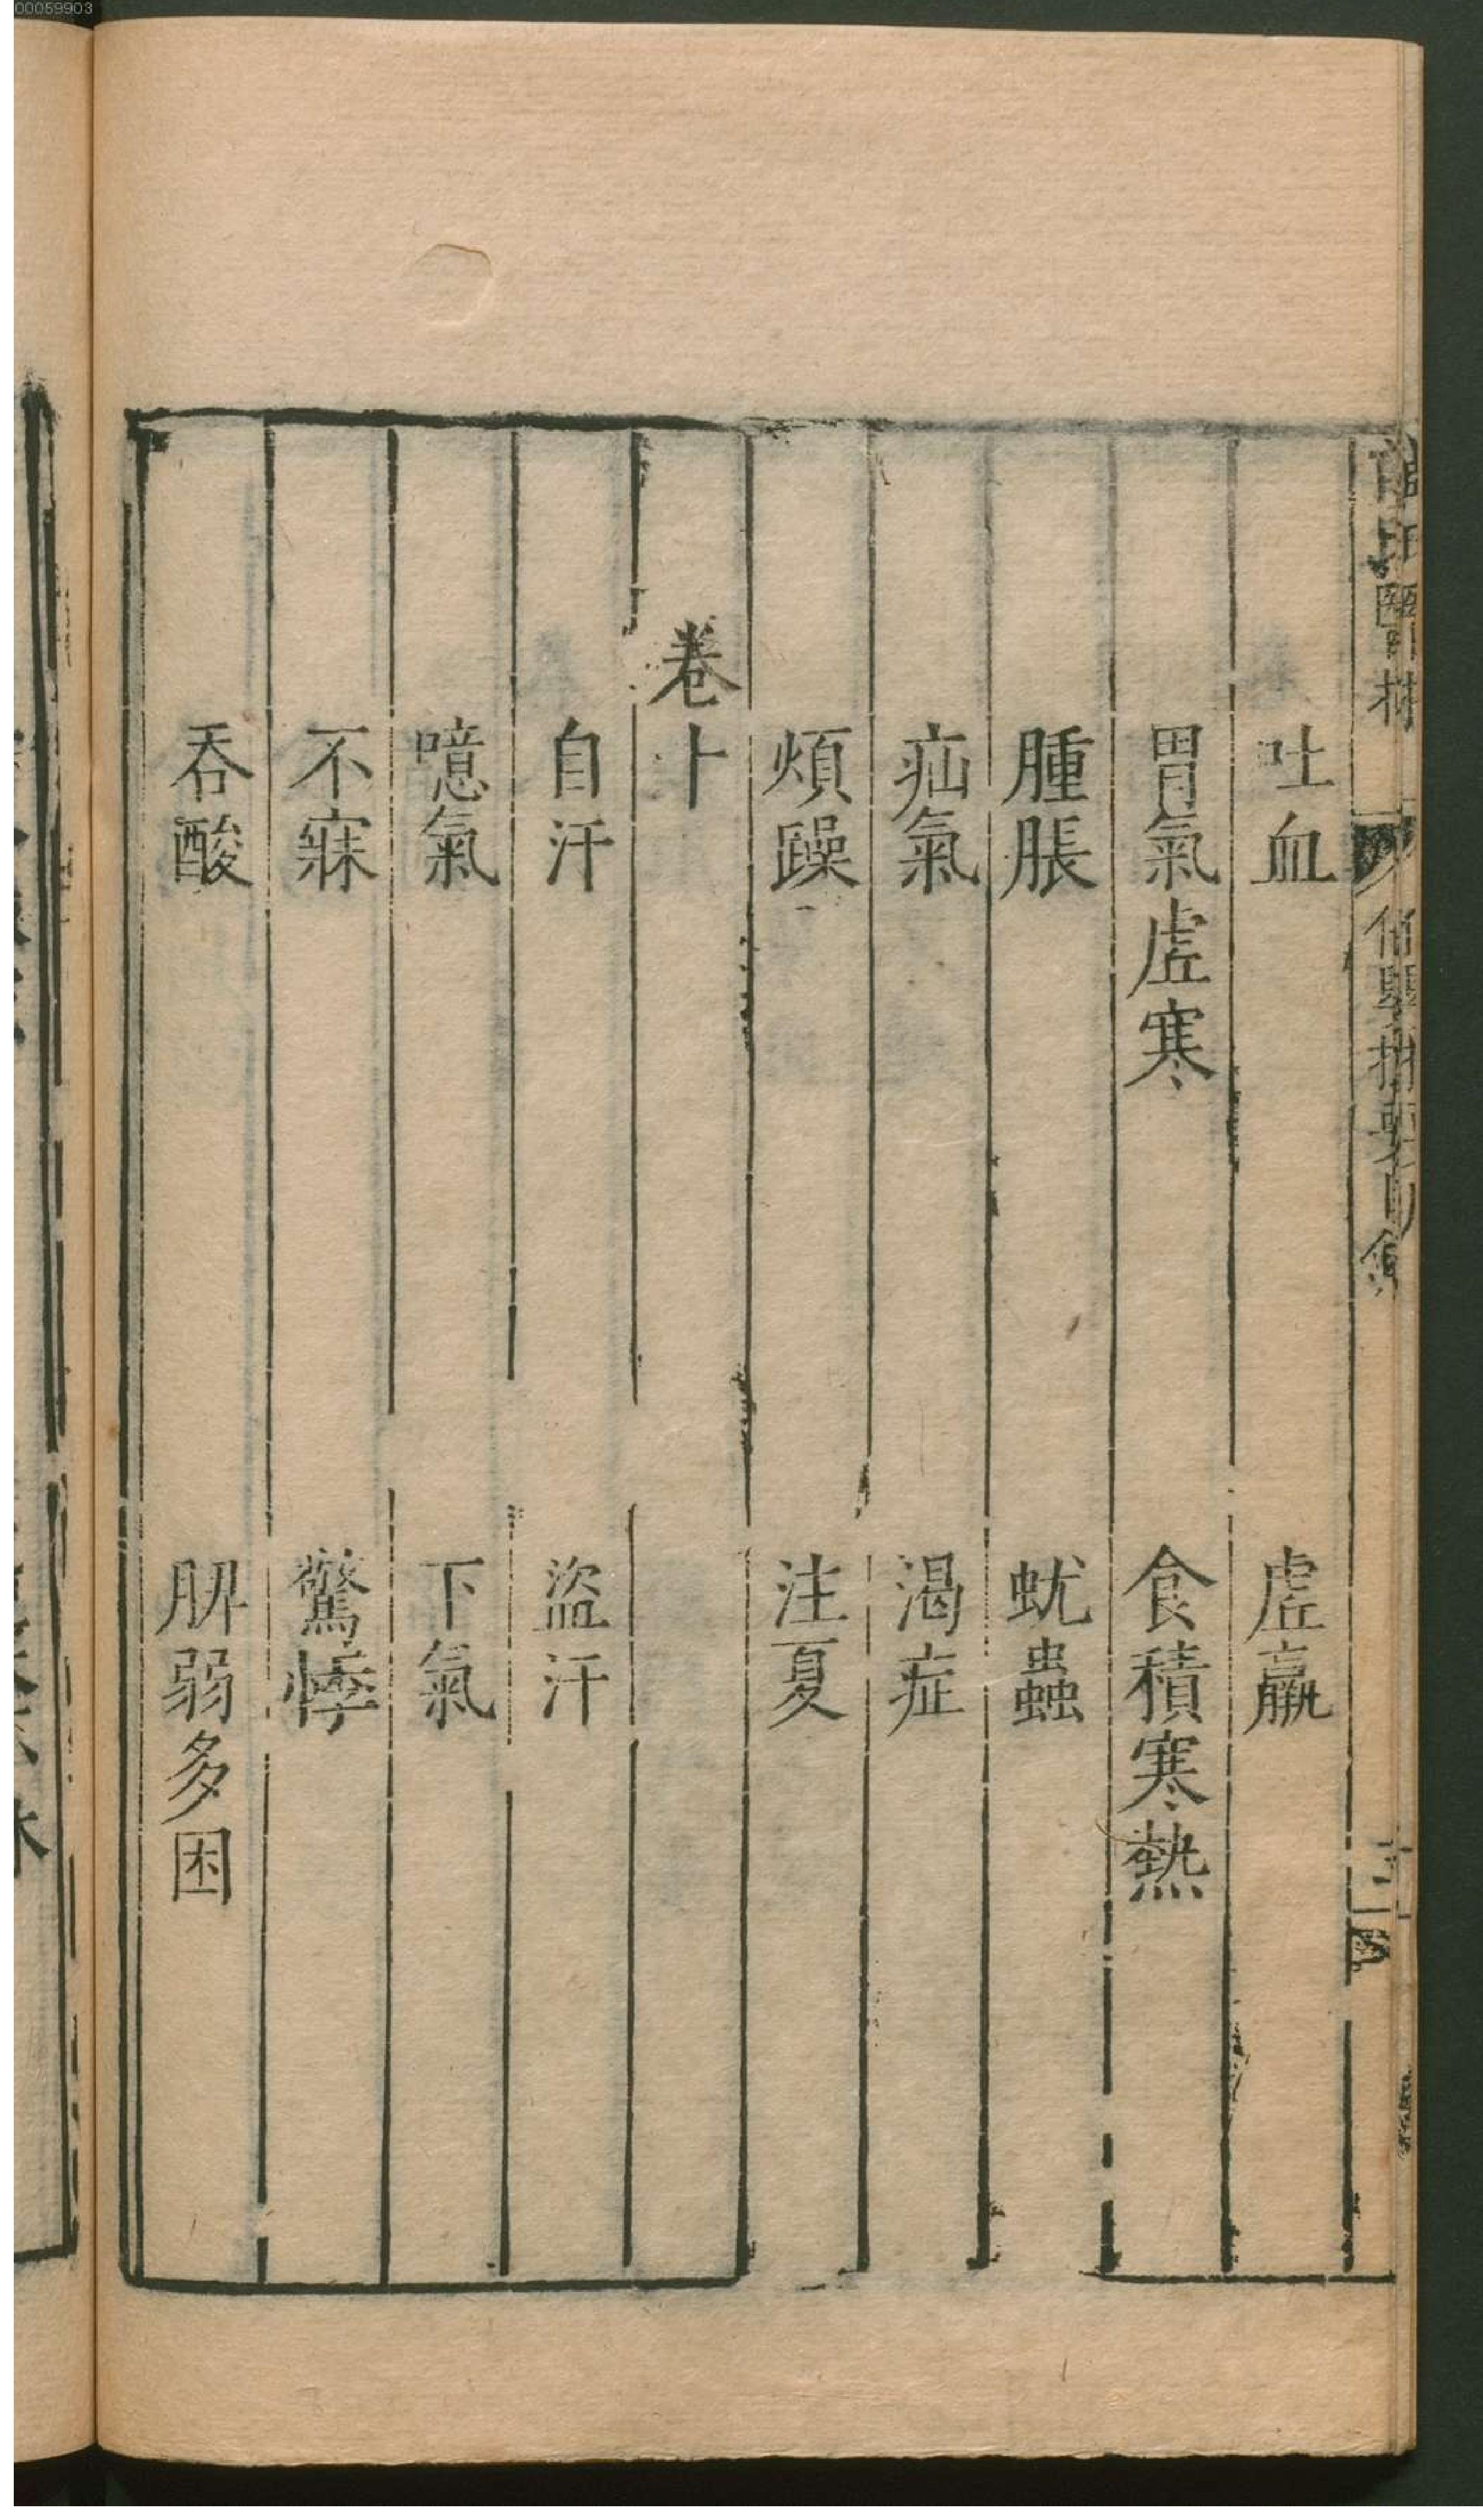 00059903
吐血　虗羸
胃氣虗寒　食積寒熱
腫脹　蚘蟲
疝氣　渴症
煩躁　注夏
卷十
自汗　盜汗
噫氣　下氣
不寐　驚悸
吞酸　脾弱多困